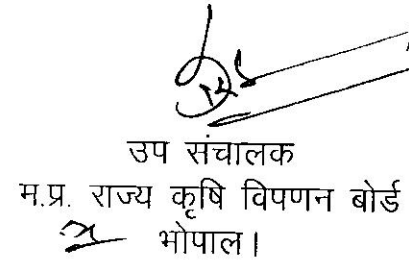 उप संचालक
म.प्र. राज्य कृषि विपणन बोर्ड
भोपाल।